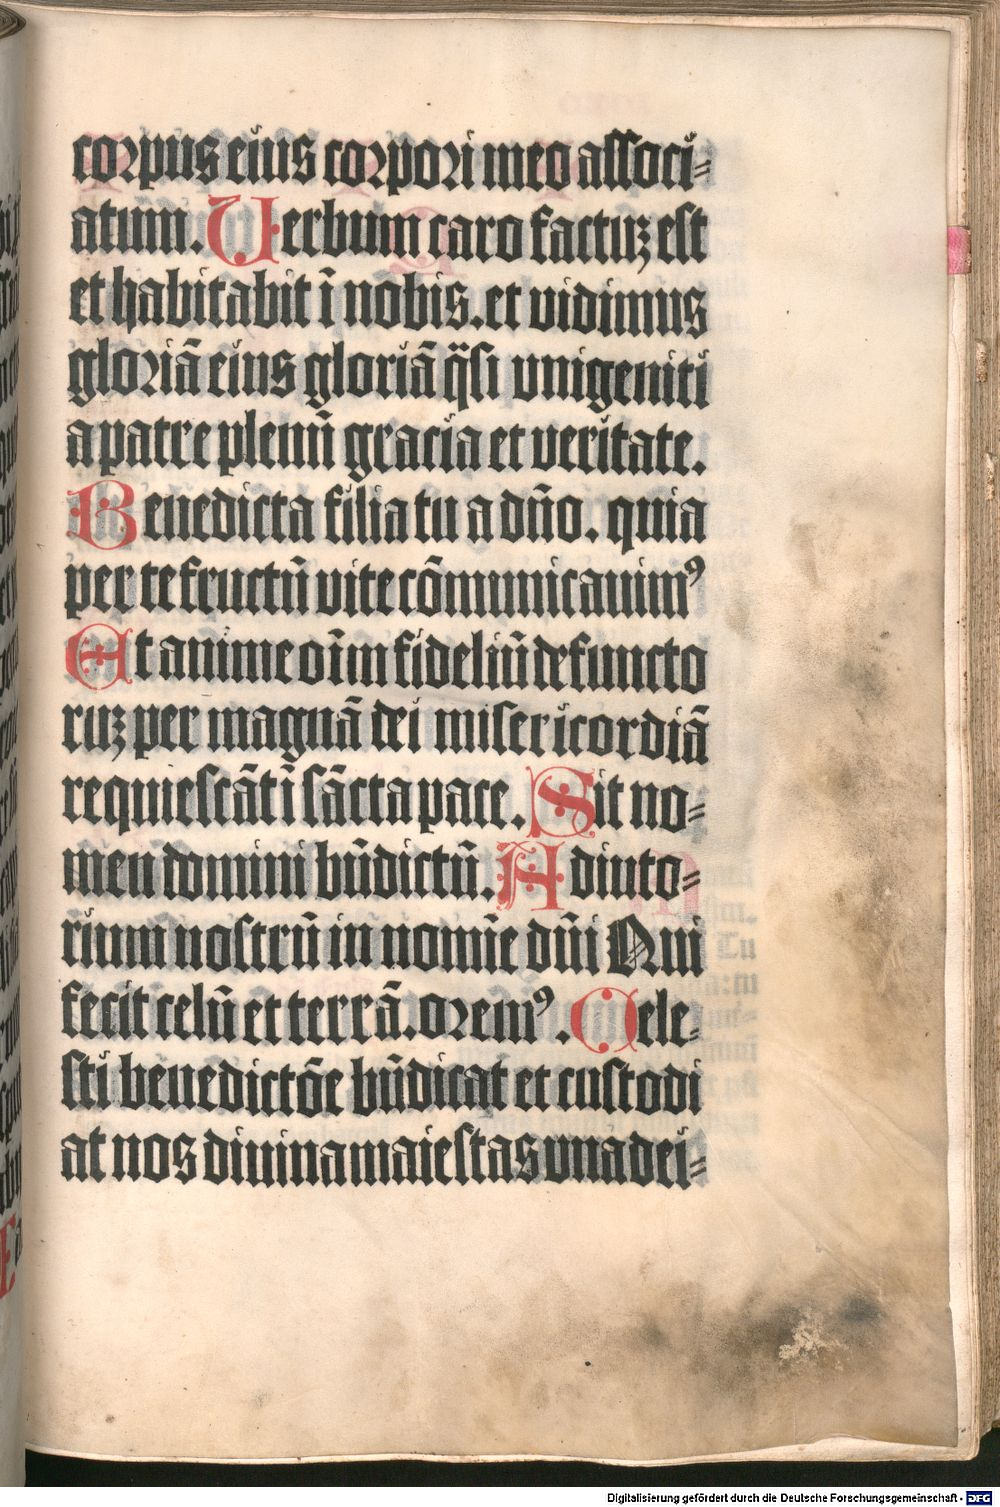 corpus eius corpori meo associ⸗
atum. Uerbum caro factuꝫ est
et habitabit ī nobis. et vidimus
gloriā eius gloriā q̈si vnigeniti
a patre plenū gracia et veritate.
Benedicta filia tu a dn̄o. quia
per te fructū vite cōmunicauimꝰ
Et anime oīm fideliū defuncto
ruꝫ per magnā dei misericordiā
requiescāt ī sācta pace. Sit no⸗
men domini bn̄dictū. Adiuto⸗
rium nostrū in nomīe dn̄i Qui
fecit celū et terrā. oremꝰ. Cele⸗
sti benedictōe bn̄dicat et custodi
at nos diuina maiestas vna dei⸗
Digitalisierung gefördert durch die Deutsche Forschungsgemeinschaft - DFG